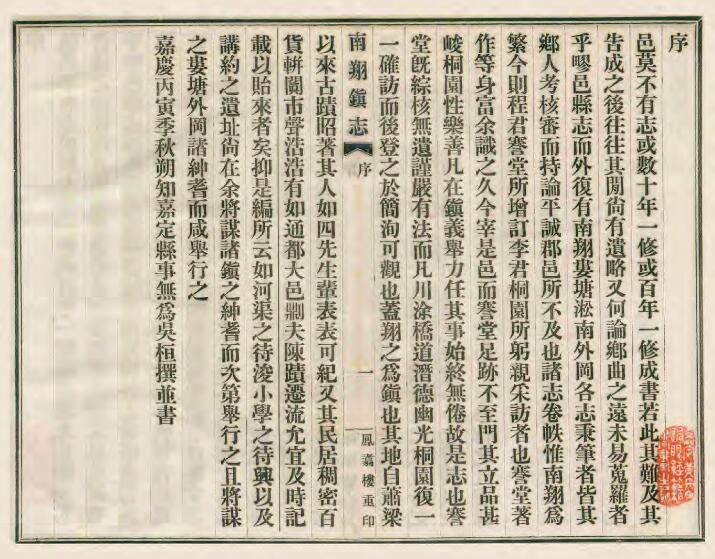 序
邑莫不有志或數十年一修或百年一修成書若此其難及其
告成之後往往其閒尙有遺略又何論鄕曲之遠未易蒐羅者
乎嘐邑縣志而外復有南翔婁塘淞南外岡各志秉筆者皆其
鄕人考核審而持論平誠郡邑所不及也諸志卷帙惟南翔爲
繁今則程君謇堂所增訂李君桐園所躬親采訪者也謇堂著
作等身富余識之久今宰是邑而謇堂足跡不至門其立品甚
峻桐園性樂善凡在鎭義舉力任其事始終無倦故是志也謇
堂旣綜核無遺謹嚴有法而凡川涂橋道潛德幽光桐園復一
一確訪而後登之於簡洵可觀也蓋翔之爲鎭也其地自蕭梁
南翔鎭志
序
一
鳳嘉樓重印
以來古蹟昭著其人如四先生輩表表可紀又其民居稠密百
貨輧闐市聲浩浩有如通都大邑剬夫陳蹟遷流允宜及時記
載以貽來者矣抑是編所云如河渠之待淩小學之待興以及
講約之遺址尙在余將謀諸鎭之紳耆而次第舉行之且將謀
之婁塘外岡諸紳耆而咸舉行之
嘉慶丙寅季秋朔知嘉定縣事無爲吳桓撰並書